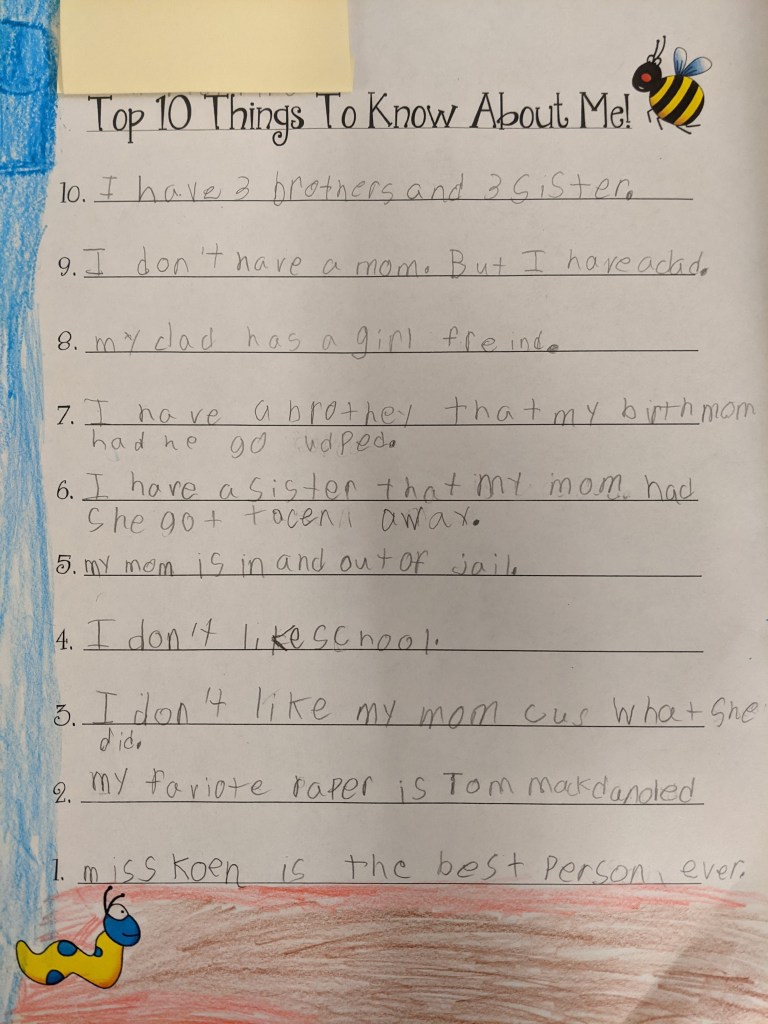 Top 10 Things To Know About Me!
10. I have 3 brothers and 3 sister.
9. I don't have a mom. But I have a dad.
8. my dad has a girl freind.
7. I have a brother that my birth mom
had he go udped.
6. I have a sister that my mom had
she got tocen away.
5. my mom is in and out of jail.
4. I don't like school.
3. I don't like my mom cus what she
did.
2. my fariote raper is Tom mackdanoled
1. miss Koen is the best person, ever.